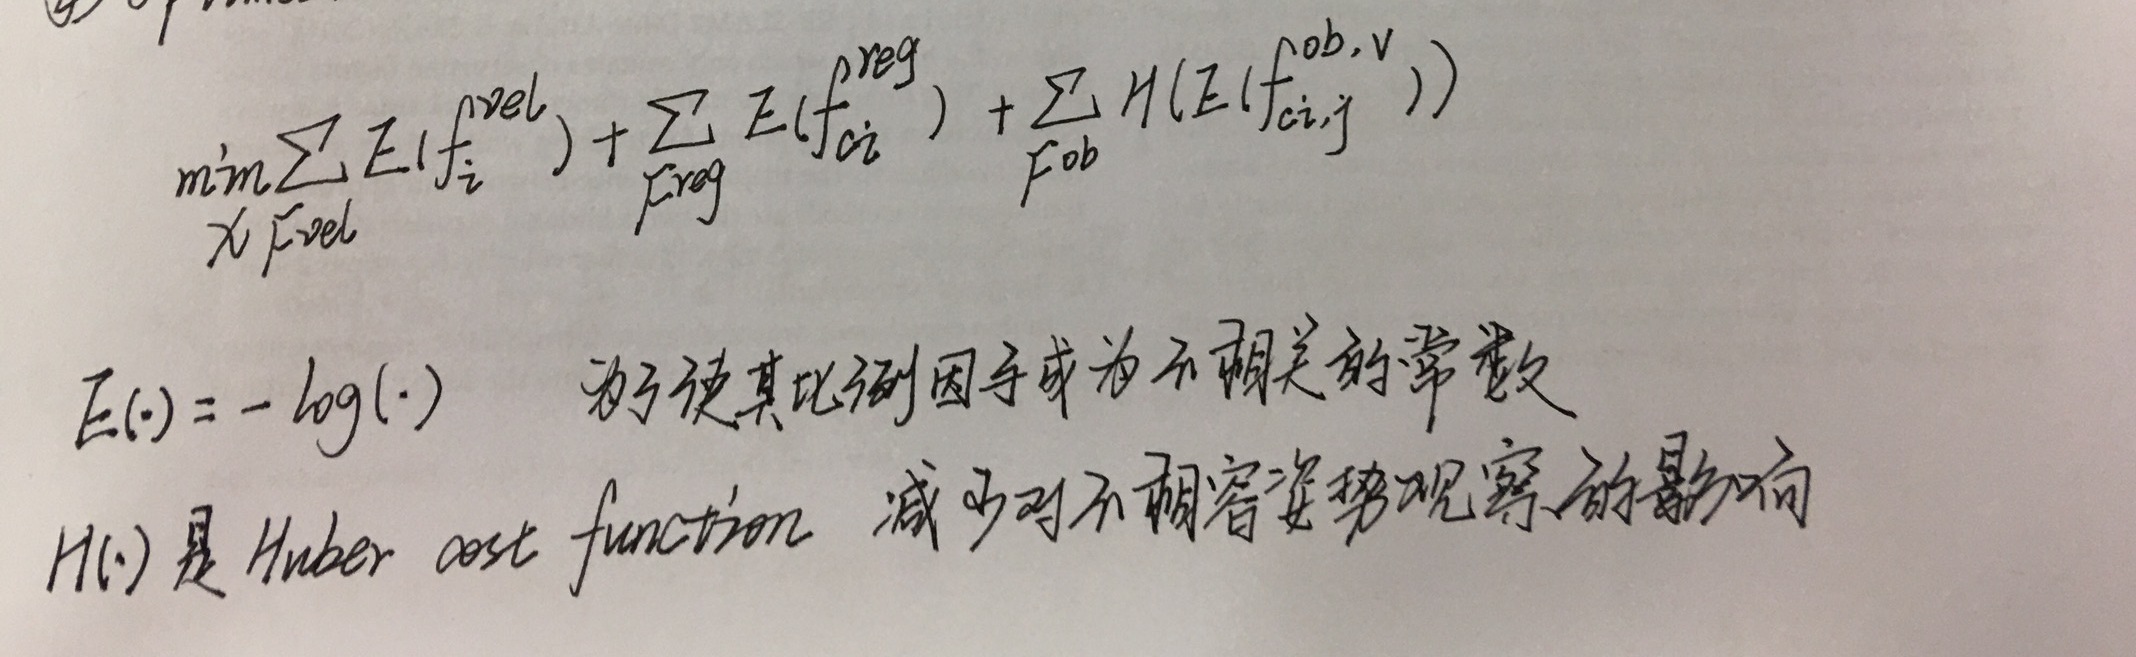 min_x Σ_{F^vel} E(f_i^vel) + Σ_{F^reg} E(f_ci^reg) + Σ_{F^ob} H(E(f_{ci,j}^{ob,v}))
E(·) = -log(·) 为了使其比例因子成为不相关的常数
H(·) 是 Huber cost function 减少对不相容姿势观察的影响